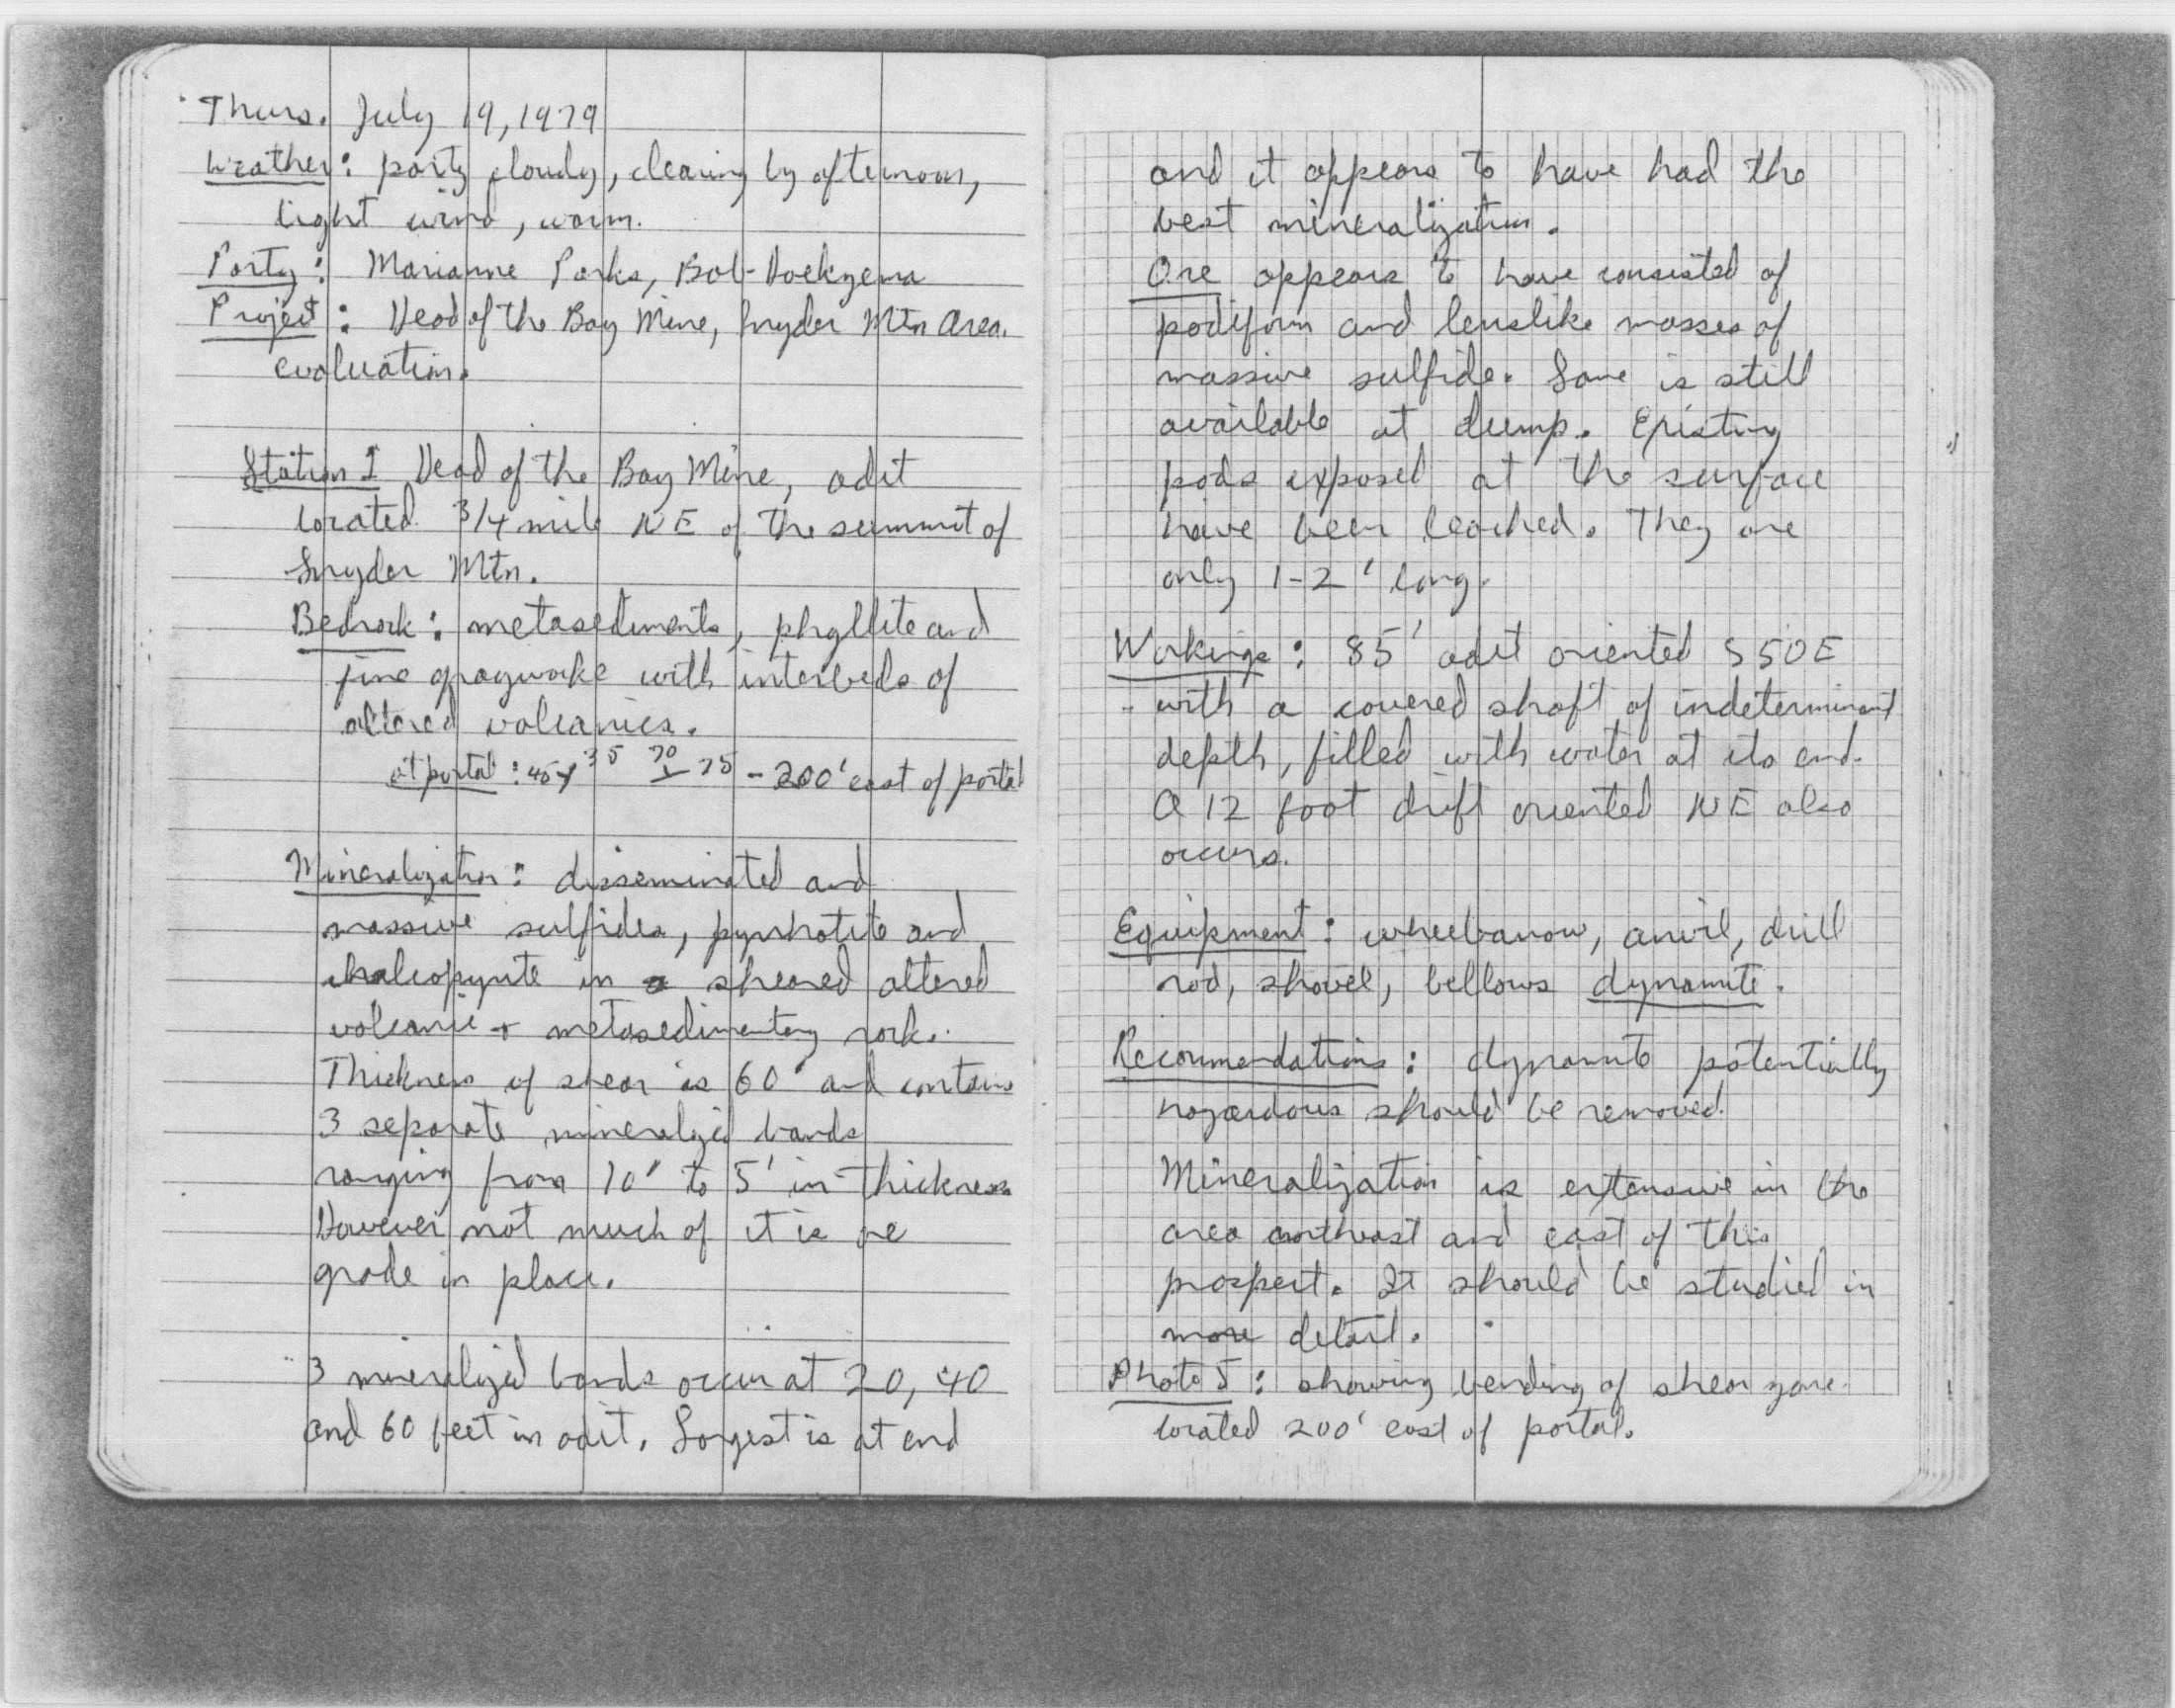 Thurs. July 19, 1979
Weather: partly cloudy, clearing by afternoon,
light wind, warm.
Party: Marianne Parks, Bob Hoekzema
Project: Head of the Bay Mine, Snyder Mtn Area.
evaluation.
Station 1 Head of the Bay Mine, adit
located 3/4 mile NE of the summit of
Snyder Mtn.
Bedrock: metasediments, phyllite and
fine graywake with interbeds of
altered volcanics.
at portal: 45 35 70 75 - 200' east of portal
Mineralization: disseminated and
massive sulfides, pyrrhotite and
chalcopyrite in sheared altered
volcanic + metasedimentary rock.
Thickness of shear is 60' and contains
3 separate mineralized bands
ranging from 10' to 5' in thickness
However not much of it is ore
grade in place.
3 mineralized bands occur at 20, 40
and 60 feet in adit. Largest is at end
and it appears to have had the
best mineralization.
Ore appears to have consisted of
podiform and lenslike masses of
massive sulfide. Some is still
available at dump. Existing
pods exposed at the surface
have been leached. They are
only 1-2' long.
Workings: 85' adit oriented S50E
with a covered shaft of indeterminant
depth, filled with water at its end.
A 12 foot drift oriented NE also
occurs.
Equipment: wheelbarrow, anvil, drill
rod, shovel, bellows dynamite.
Recommendations: dynamite potentially
hazardous should be removed.
Mineralization is extensive in the
area northeast and east of this
prospect. It should be studied in
more detail.
Photo 5: showing bending of shear zone
located 200' east of portal.